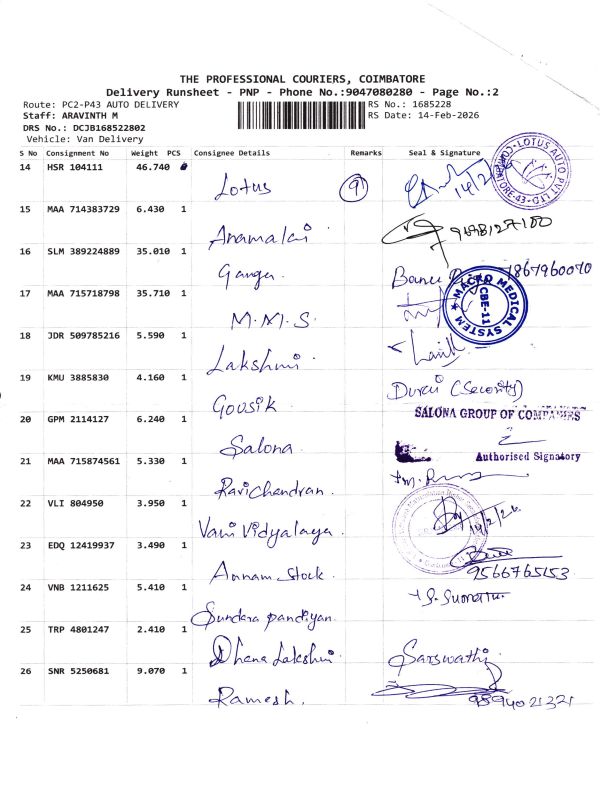 THE PROFESSIONAL COURIERS, COIMBATORE
Delivery Runsheet - PNP - Phone No.:9047080280 - Page No.:2
Route: PC2-P43 AUTO DELIVERY RS No.: 1685228
Staff: ARAVINTH M RS Date: 14-Feb-2026
DRS No.: DCJB168522802
Vehicle: Van Delivery
S No Consignment No Weight PCS Consignee Details Remarks Seal & Signature
14 HSR 104111 46.740 Lotus 9 14/2/
LOTUS AUTO PVT LTD
15 MAA 714383729 6.430 1 Anamalai
16 SLM 389224889 35.010 1 Ganga Banu 7867960070
17 MAA 715718798 35.710 1 M.M.S.
MACRO MEDICAL SYSTEM CBE-11
18 JDR 509785216 5.590 1 Lakshmi
19 KMU 3885830 4.160 1 Gousik Durai (Security)
20 GPM 2114127 6.240 1 Salona SALONA GROUP OF COMPANIES
Authorised Signatory
21 MAA 715874561 5.330 1 Ravichandran
22 VLI 804950 3.950 1 Vani Vidyalaya 14/2/26
23 EDQ 12419937 3.490 1 Annam Stock 9566765153
24 VNB 1211625 5.410 1 Sundara pandiyan
25 TRP 4801247 2.410 1 Dhana Lakshmi Sarswathi
26 SNR 5250681 9.070 1 Ramesh 9894021321